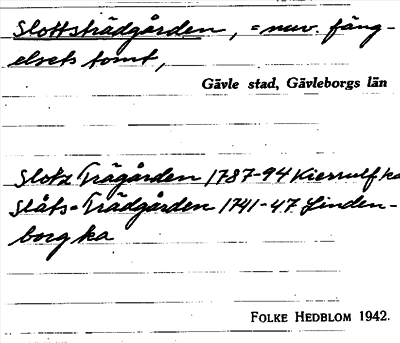 Slottsträdgården, = nuv. fäng-
elsets tomt,
Gävle stad, Gävleborgs län
Slotz Trägården 1787-94 Kierrulf ka
Slåts-Trädgården 1741-47 Linden-
borg ka
FOLKE HEDBLOM 1942.